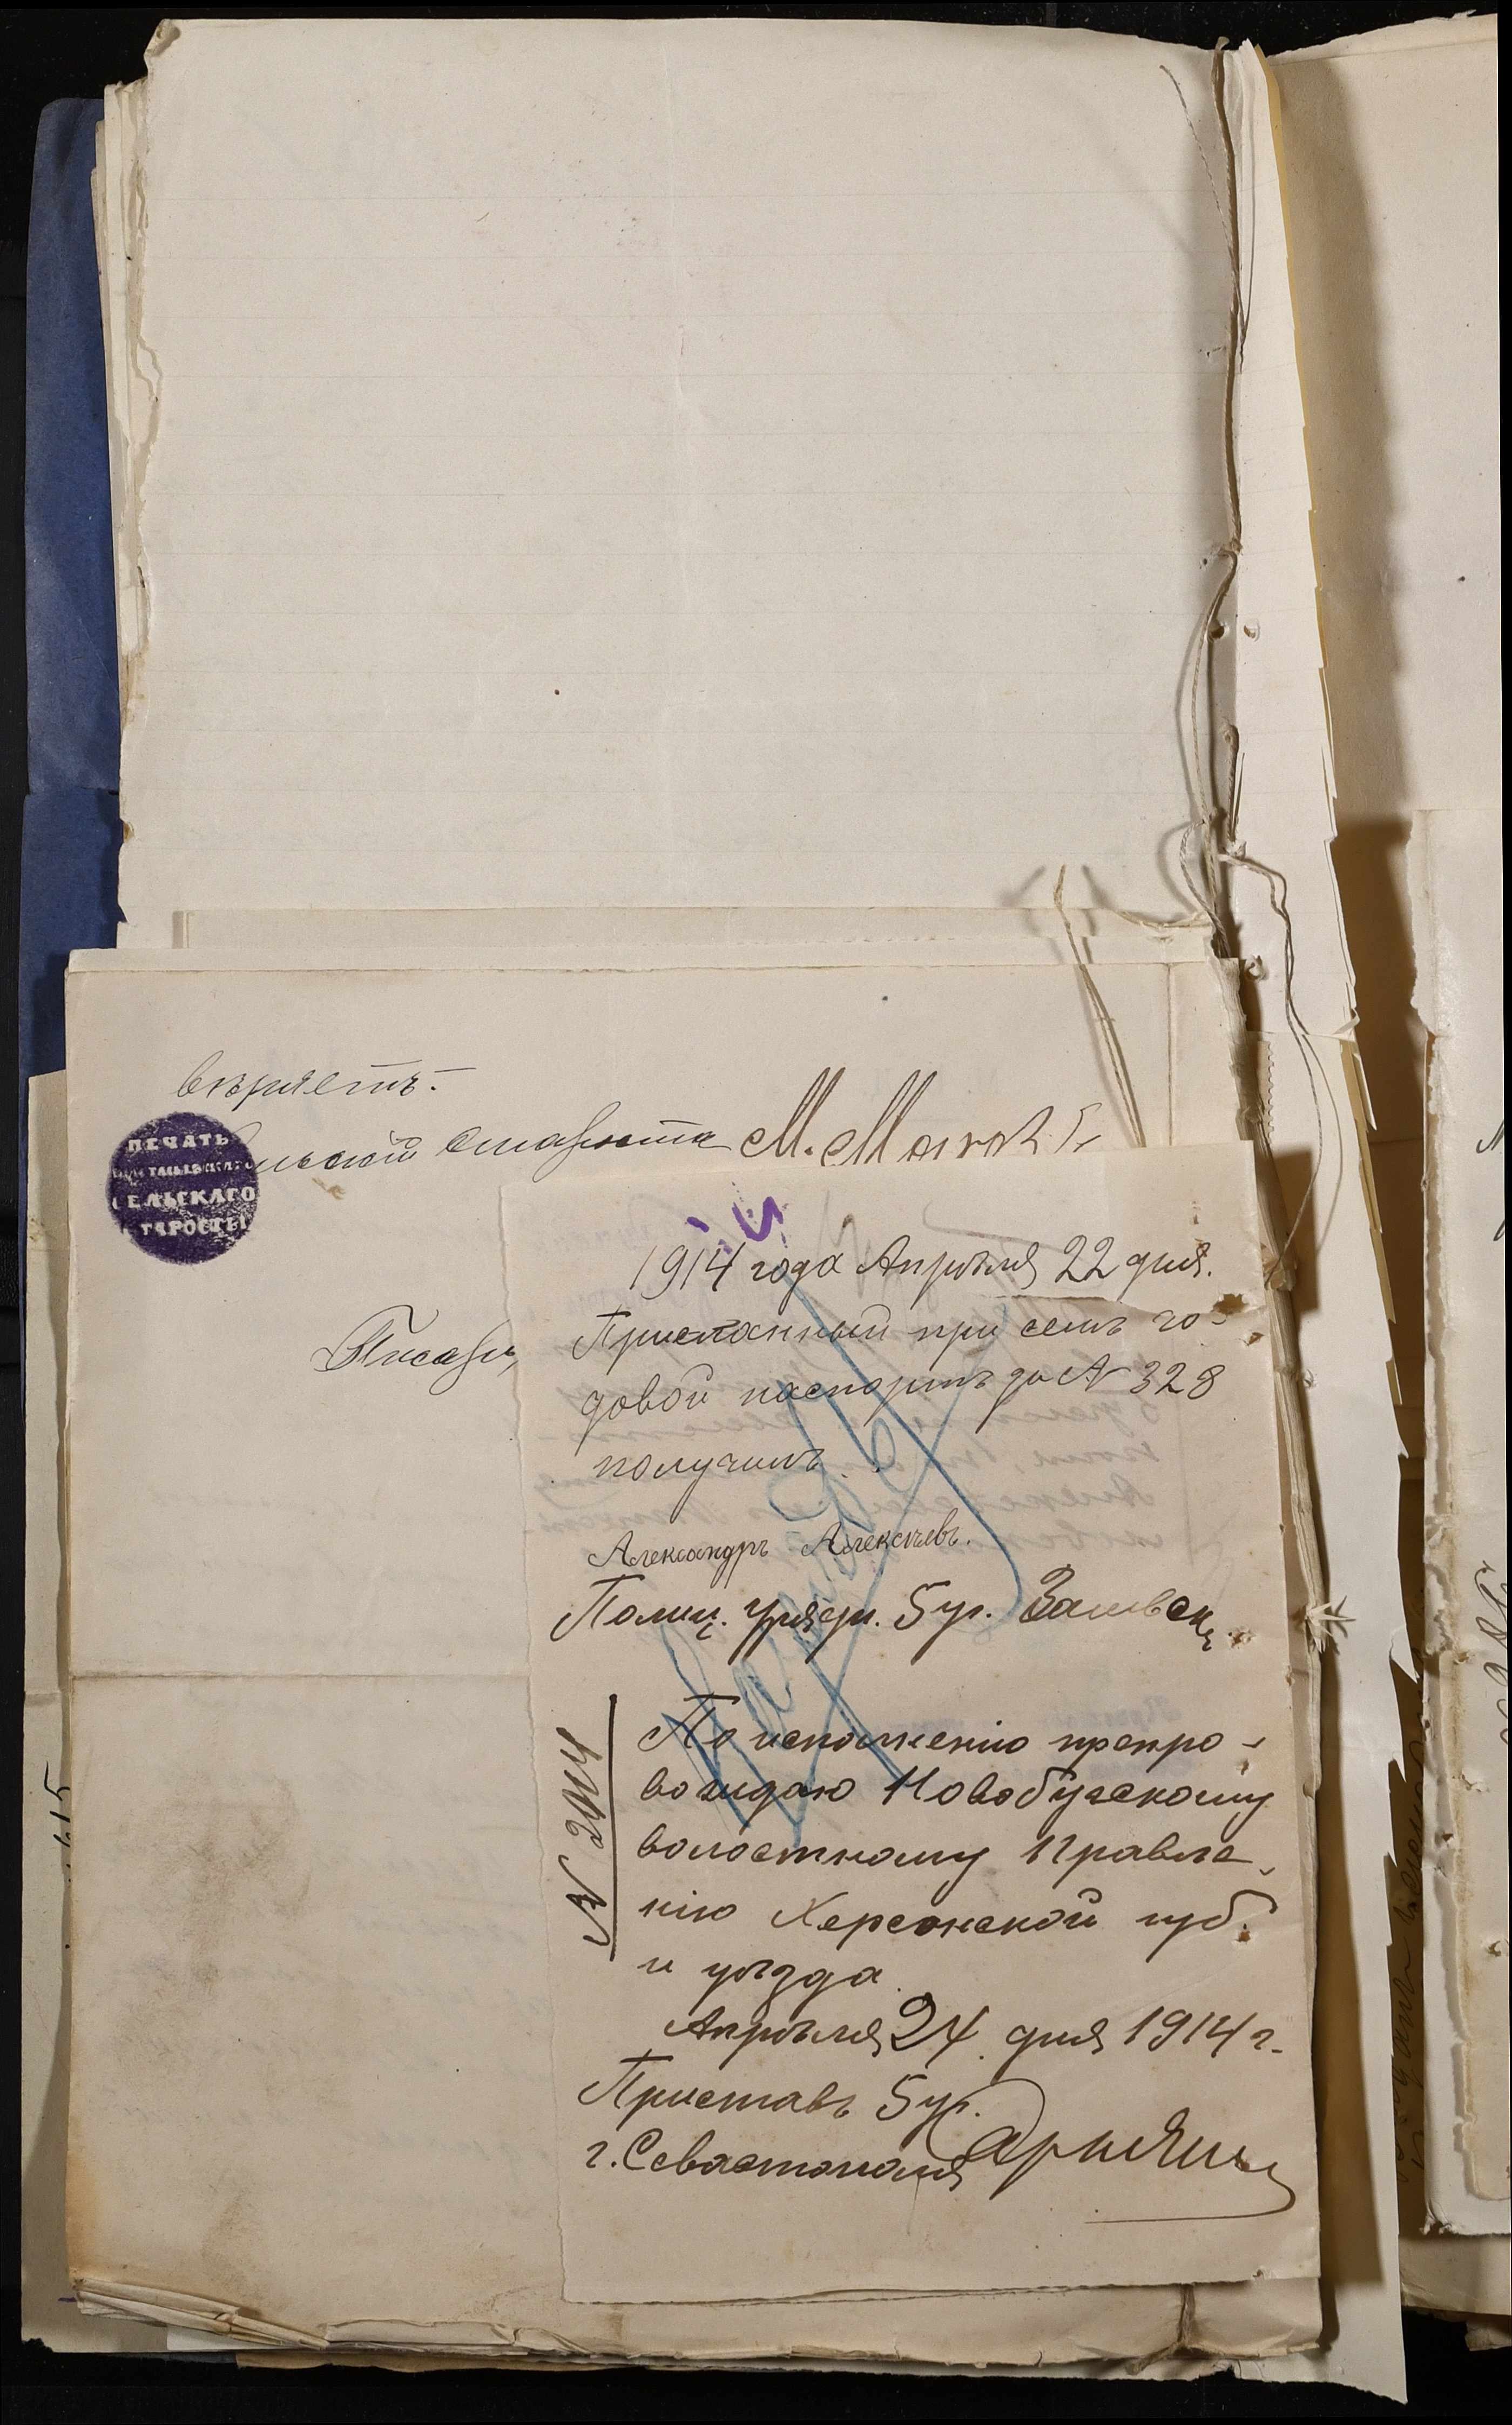 вѣряетъ.
Сельскій Староста М.
ПЕЧАТЬ
СЕЛЬСКАГО
СТАРОСТЫ
Писарь
1914 года Апрѣля 22 дня.
Присланный при семъ го-
довой паспортъ за № 328
получилъ.
Александръ Алексѣевъ.
Полиц. уряд. 5 уч.
№ 2914
По исполненію препро-
вождаю Новобугскому
волостному Правле-
нію Херсонской губ.
и уѣзда.
Апрѣля 24 дня 1914 г.
Приставъ 5 уч.
г. Севастополя